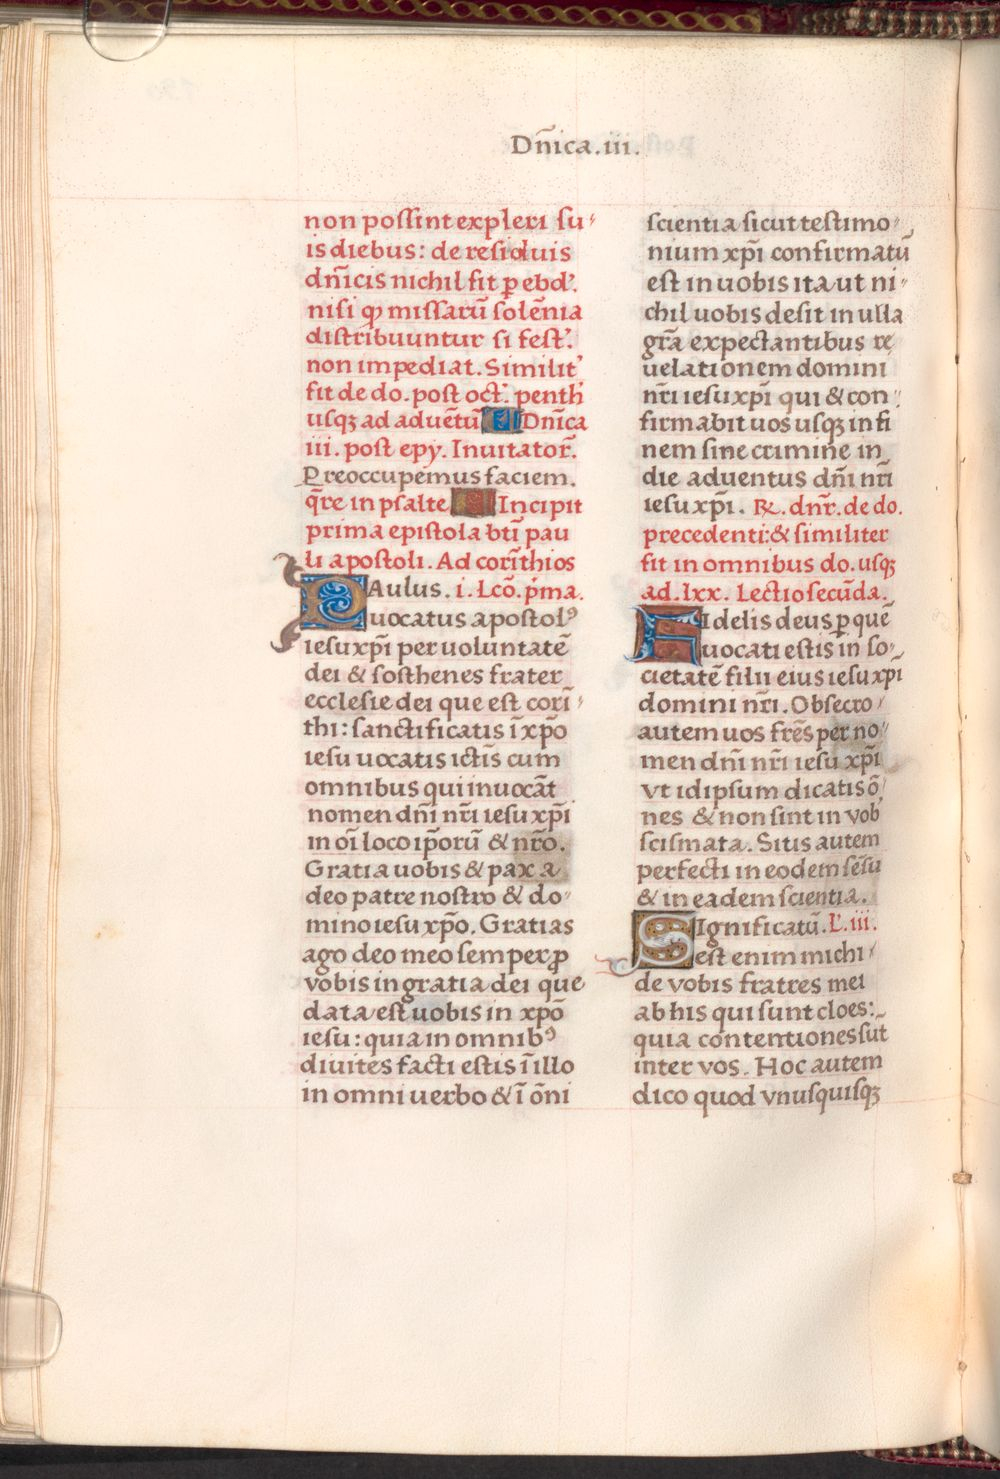 Dñica.iii.
non possint expleri su-
is diebus: de residuis
dñicis nichil fit p ebd'.
nisi qp missarū solēnia
distribuuntur si fest'.
non impediat. Similit'
fit de do. post oct'. penth'
usqꝫ ad aduētū Dnīca
iii. post epy. Inuitator̄.
Preoccupemus faciem.
q̄re in psalte Incipit
prima epistola btī pau
li apostoli. Ad corīthios
PAulus. i. Lcō. p'ma.
uocatus apostolꝰ
iesu xp̄i per uoluntatē
dei & sosthenes frater
ecclesie dei que est corī-
thi: sanctificatis ī xp̄o
iesu uocatis sctīs cum
omnibus qui inuocāt
nomen dñi nr̄i iesu xp̄i
in oī loco ip̄orū & nr̄o.
Gratia uobis & pax a
deo patre nostro & do-
mino iesu xp̄o. Gratias
ago deo meo semper ꝓ
vobis in gratia dei que
data est uobis in xp̄o
iesu: quia in omnibꝰ
diuites facti estis ī illo
in omni uerbo & ī ōni
scientia sicut testimo-
nium xp̄i confirmatū
est in uobis ita ut ni-
chil uobis desit in ulla
gr̄a expectantibus re
uelationem domini
nr̄i iesu xp̄i qui & con-
firmabit uos usqꝫ in fi
nem sine crimine in
die aduentus dñi nr̄i
iesu xp̄i. R̄. dnr̄. de do.
precedenti: & similiter
fit in omnibus do. usqꝫ
ad. lxx. Lectio secūda.
FIdelis deus p quē
uocati estis in so-
cietatē filii eius iesu xp̄i
domini nr̄i. Obsecro
autem uos fr̄es per no-
men dñi nr̄i iesu xp̄i
vt idipsum dicatis ō
nes & non sint in vob'
scismata. Sitis autem
perfecti in eodem sēsu
& in eadem scientia.
SIgnificatū. L'. iii.
est enim michi
de vobis fratres mei
ab his qui sunt cloes:
quia contentiones sūt
inter vos. Hoc autem
dico quod vnusquisqꝫ